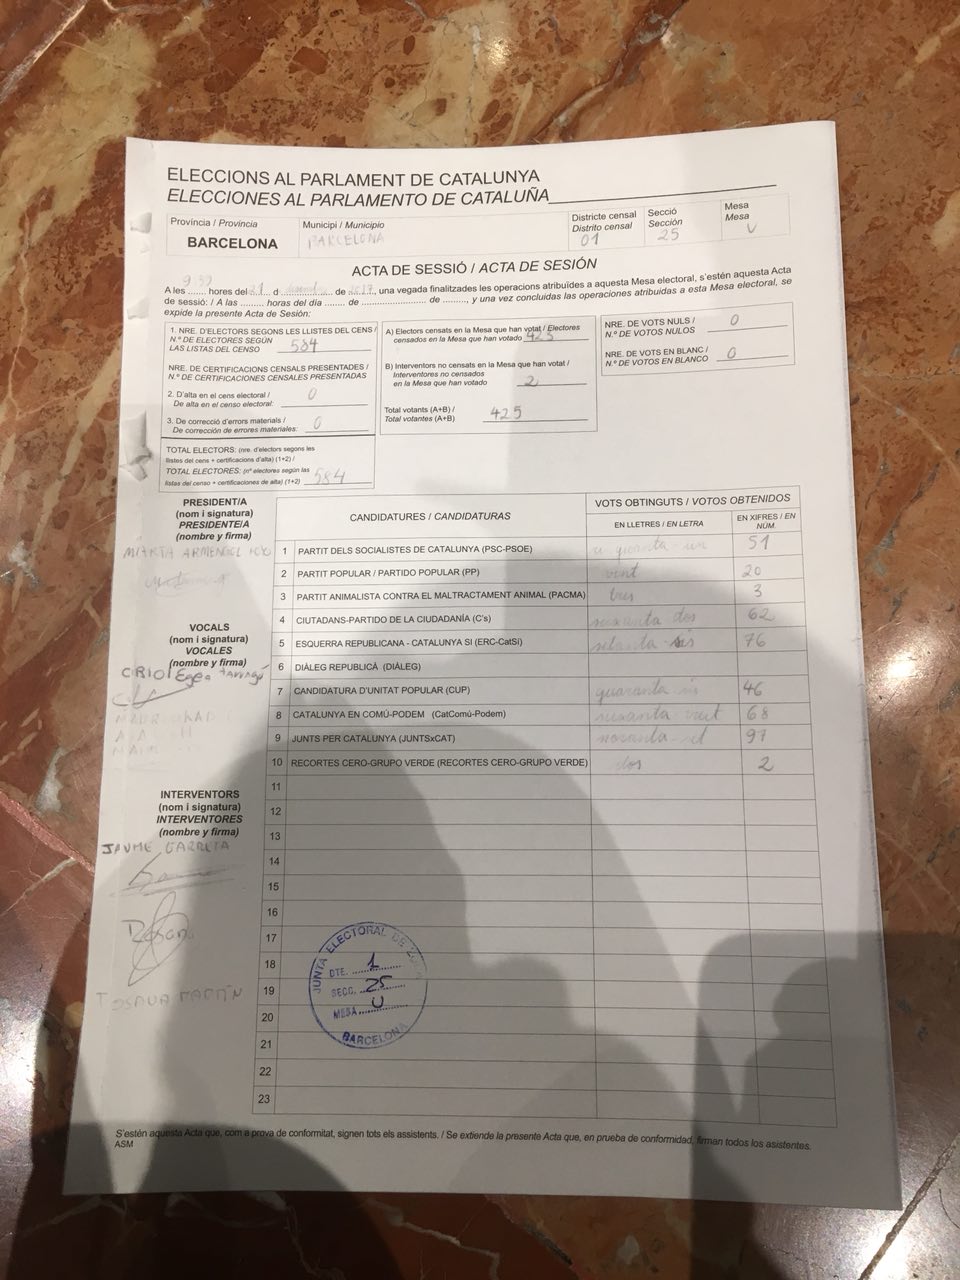 ELECCIONS AL PARLAMENT DE CATALUNYA
ELECCIONES AL PARLAMENTO DE CATALUÑA
Província / Provincia
BARCELONA
Municipi / Municipio
BARCELONA
Districte censal
Distrito censal
01
Secció
Sección
25
Mesa
Mesa
U
ACTA DE SESSIÓ / ACTA DE SESIÓN
A les ....... hores del 21 d ............ de 2017, una vegada finalitzades les operacions atribuïdes a aquesta Mesa electoral, s'estén aquesta Acta
de sessió: / A las ....... horas del día ....... de ....................... de ........., y una vez concluidas las operaciones atribuidas a esta Mesa electoral, se
expide la presente Acta de Sesión:
1. NRE. D'ELECTORS SEGONS LES LLISTES DEL CENS /
N.º DE ELECTORES SEGÚN
LAS LISTAS DEL CENSO 584
NRE. DE CERTIFICACIONS CENSALS PRESENTADES /
N.º DE CERTIFICACIONES CENSALES PRESENTADAS
2. D'alta en el cens electoral /
De alta en el censo electoral: 0
3. De correcció d'errors materials /
De corrección de errores materiales: 0
TOTAL ELECTORS: (nre. d'electors segons les
llistes del cens + certificacions d'alta) (1+2) /
TOTAL ELECTORES: (nº electores según las
listas del censo + certificaciones de alta) (1+2) 584
A) Electors censats en la Mesa que han votat / Electores
censados en la Mesa que han votado 423
B) Interventors no censats en la Mesa que han votat /
Interventores no censados
en la Mesa que han votado 2
Total votants (A+B) /
Total votantes (A+B) 425
NRE. DE VOTS NULS /
N.º DE VOTOS NULOS 0
NRE. DE VOTS EN BLANC /
N.º DE VOTOS EN BLANCO 0
PRESIDENT/A
(nom i signatura)
PRESIDENTE/A
(nombre y firma)
MARTA ARMENGOL
VOCALS
(nom i signatura)
VOCALES
(nombre y firma)
ORIOL Egea
INTERVENTORS
(nom i signatura)
INTERVENTORES
(nombre y firma)
JAUME GARRETA
JOSAUA MARTÍN
CANDIDATURES / CANDIDATURAS
VOTS OBTINGUTS / VOTOS OBTENIDOS
EN LLETRES / EN LETRA
EN XIFRES / EN
NÚM.
1 PARTIT DELS SOCIALISTES DE CATALUNYA (PSC-PSOE) cinquanta-un 51
2 PARTIT POPULAR / PARTIDO POPULAR (PP) vint 20
3 PARTIT ANIMALISTA CONTRA EL MALTRACTAMENT ANIMAL (PACMA) tres 3
4 CIUTADANS-PARTIDO DE LA CIUDADANÍA (C's) seixanta dos 62
5 ESQUERRA REPUBLICANA - CATALUNYA SI (ERC-CatSí) setanta-sis 76
6 DIÀLEG REPUBLICÀ (DIÀLEG)
7 CANDIDATURA D'UNITAT POPULAR (CUP) quaranta sis 46
8 CATALUNYA EN COMÚ-PODEM (CatComú-Podem) seixanta-vuit 68
9 JUNTS PER CATALUNYA (JUNTSxCAT) noranta-set 97
10 RECORTES CERO-GRUPO VERDE (RECORTES CERO-GRUPO VERDE) dos 2
11
12
13
14
15
16
17
18
19
20
21
22
23
JUNTA ELECTORAL DE
DTE. 1
SECC. 25
MESA U
BARCELONA
S'estén aquesta Acta que, com a prova de conformitat, signen tots els assistents. / Se extiende la presente Acta que, en prueba de conformidad, firman todos los asistentes.
ASM